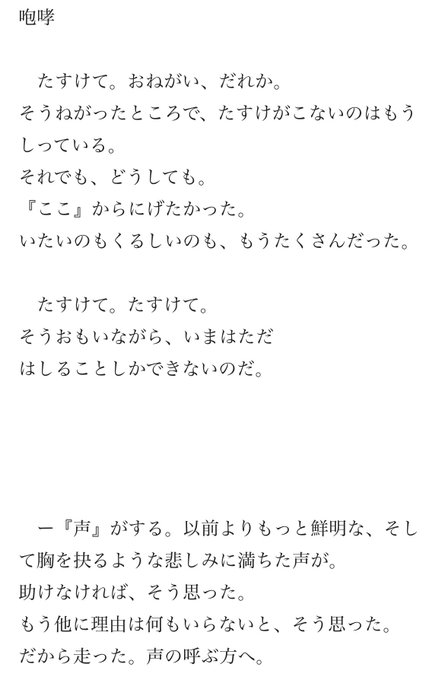 咆哮
　たすけて。おねがい、だれか。
そうねがったところで、たすけがこないのはもう
しっている。
それでも、どうしても。
『ここ』からにげたかった。
いたいのもくるしいのも、もうたくさんだった。
　たすけて。たすけて。
そうおもいながら、いまはただ
はしることしかできないのだ。
　ー『声』がする。以前よりもっと鮮明な、そし
て胸を抉るような悲しみに満ちた声が。
助けなければ、そう思った。
もう他に理由は何もいらないと、そう思った。
だから走った。声の呼ぶ方へ。